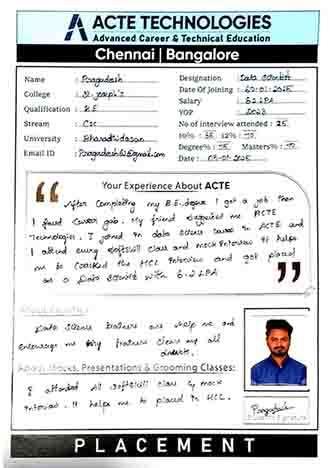 ACTE TECHNOLOGIES
Advanced Career & Technical Education
Chennai | Bangalore
Name :
College : St. Joseph's
Qualification : B.E
Stream : CSC
University : Bharathidasan
Email ID :
Designation :
Date Of Joining :
Salary : 6.2 LPA
YOP : 2023
No of interview attended : 25
10% : 12% :
Degree% : Masters% :
Date :
Your Experience About ACTE
After completing my B.E degree I got a job then
I faced career gap. My friend suggested me ACTE
Technologies. I joined in data science course in ACTE and
I attend every softskill class and mock interview. It helps
me to cracked the HCL interview and got placed
as a Data Scientist with 6.2 LPA
About Mentor:
Data science trainers are help me and
encourage me My trainers clears my all
doubts.
About Mocks, Presentations & Grooming Classes:
I attended all softskill class & mock
interview. It helps me to placed in HCL.
PLACEMENT